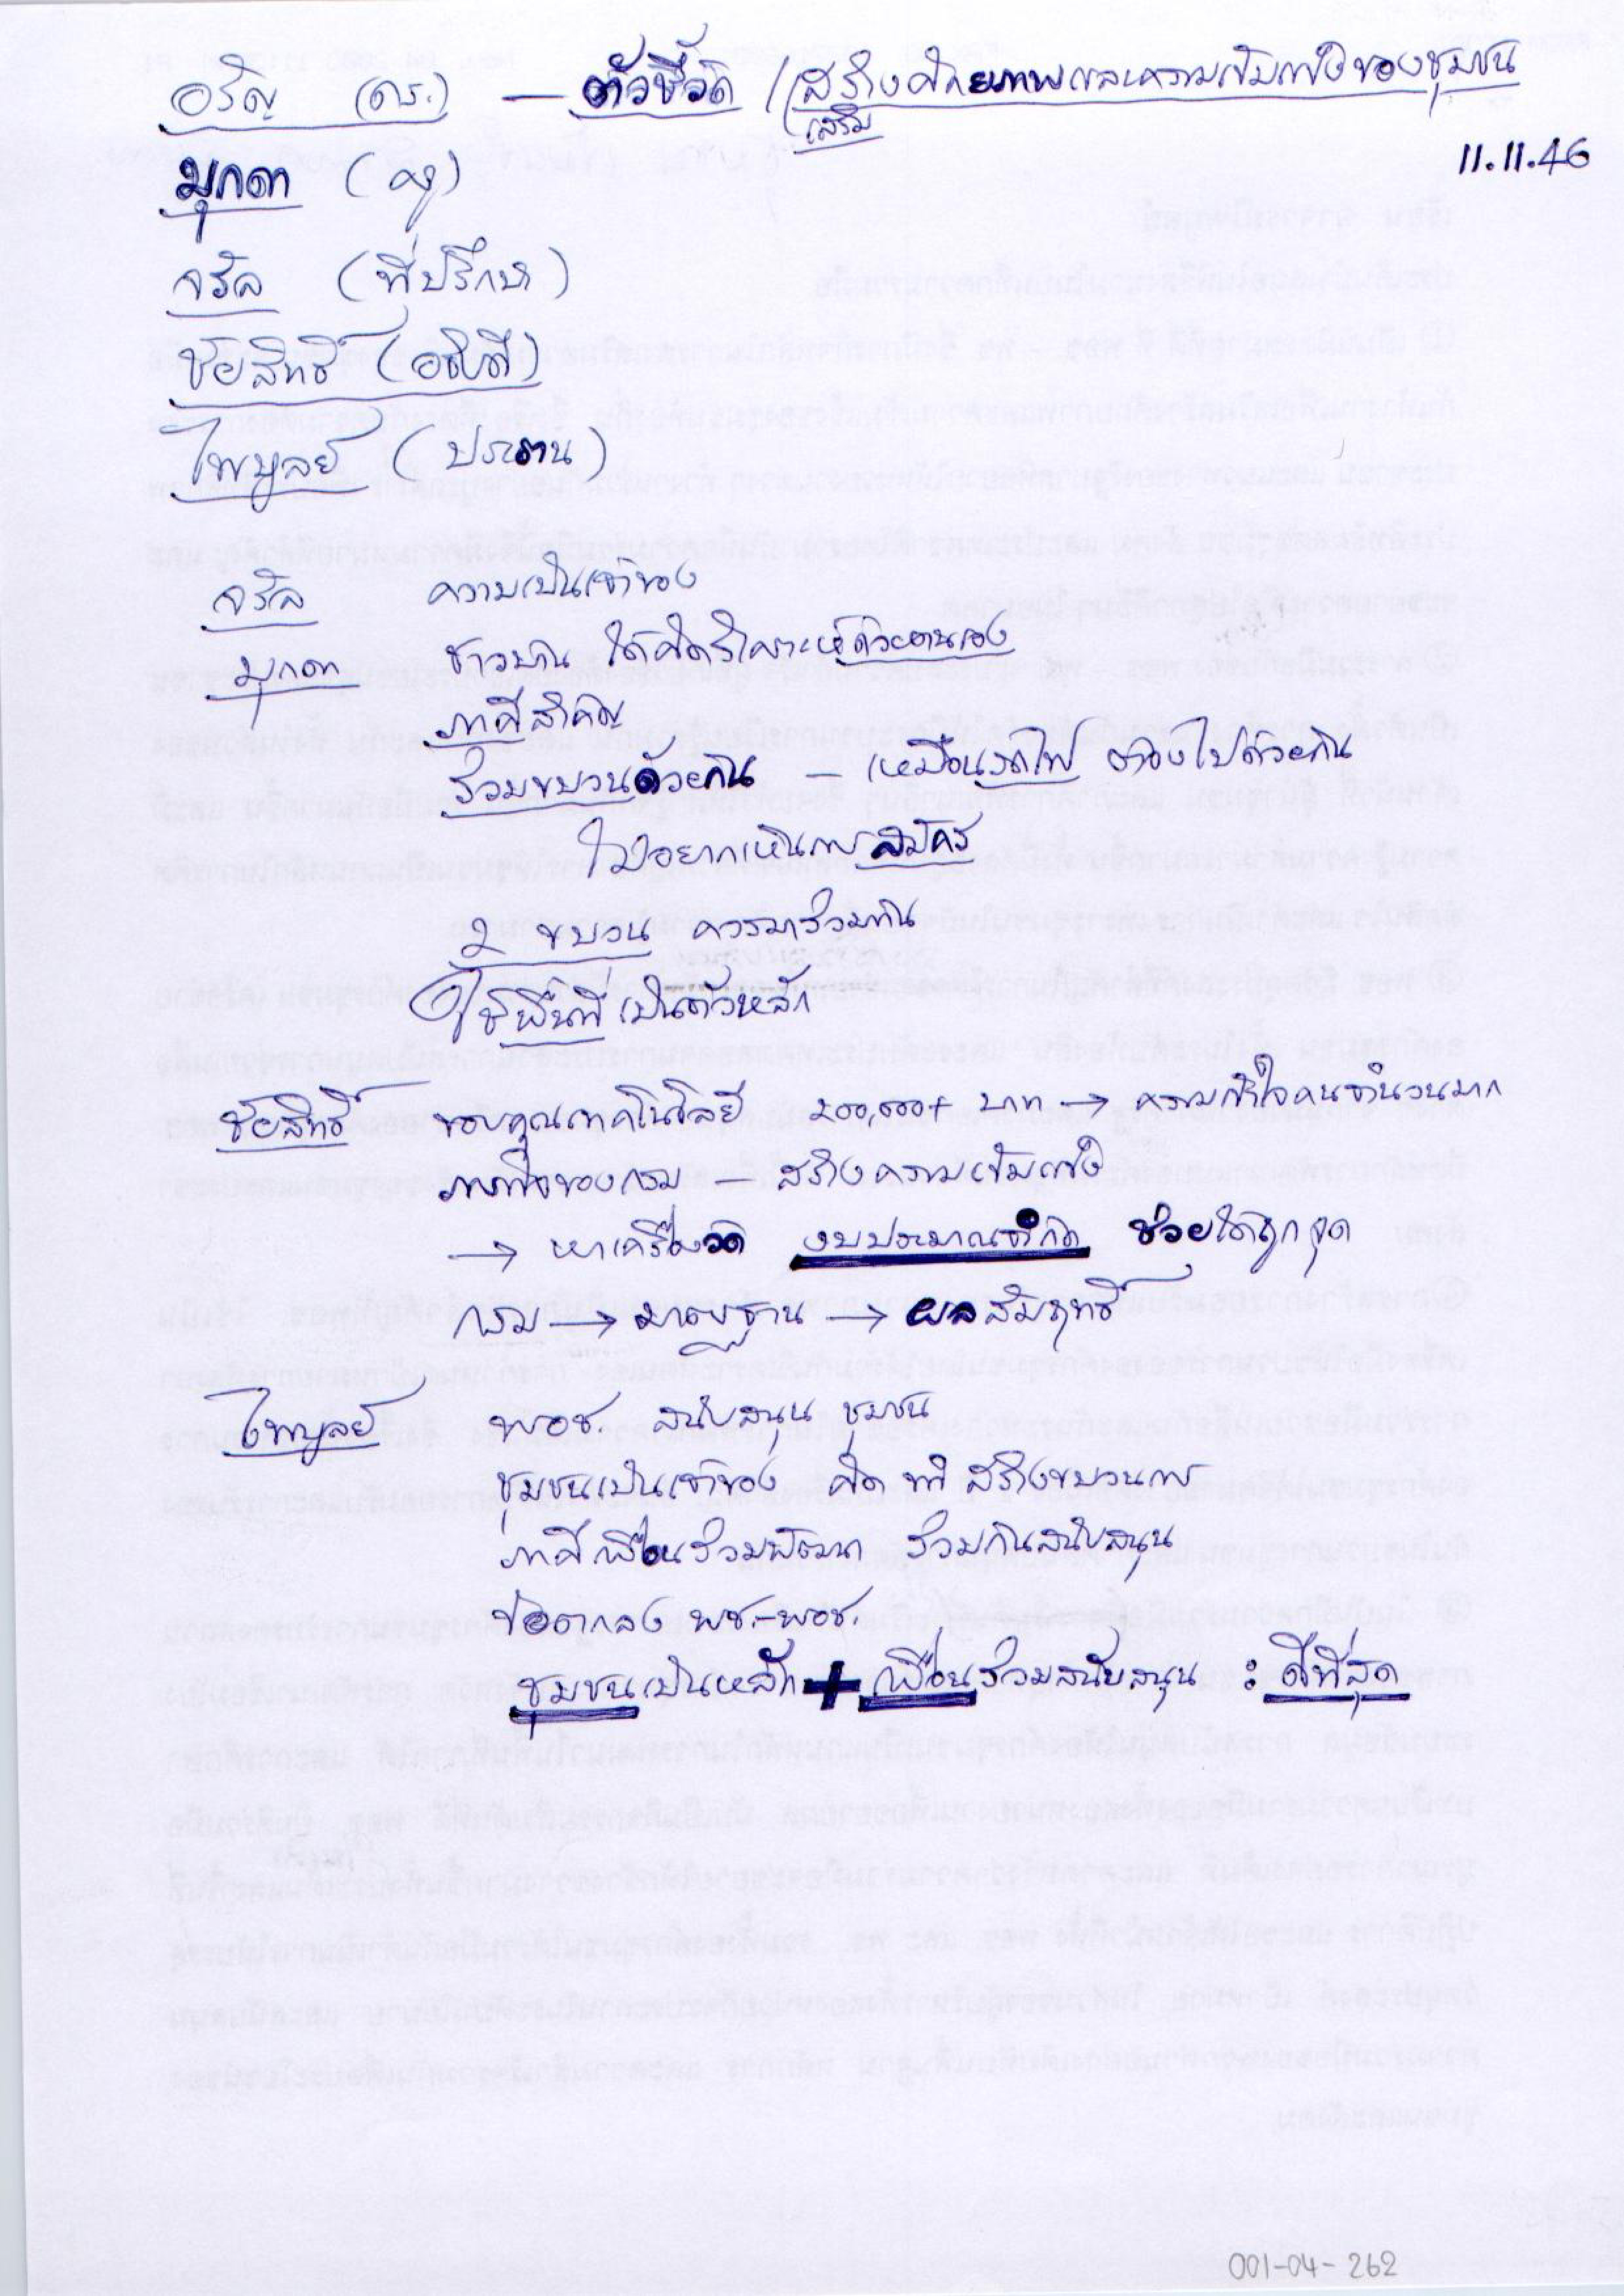 อรัญ (ดร.) — ตัวชี้วัด / (สร้างศักยภาพและความเข้มแข็งของชุมชน
(เสริม
11.11.46
มุกดา (ครู)
จรัล (ที่ปรึกษา)
ชัยสิทธิ์ (อธิบดี)
ไพบูลย์ (ประธาน)
จรัล ความเป็นเจ้าของ
มุกดา ชาวบ้าน ได้คิดวิเคราะห์ด้วยตนเอง
ภาคีสำคัญ
ร่วมขบวนด้วยกัน — เหมือนรถไฟ ต้องไปด้วยกัน
ไม่อยากเห็นการสมัคร
2 ขบวน ควรมาร่วมกัน
ใช้พื้นที่เป็นตัวหลัก
ชัยสิทธิ์ ขอบคุณเทคโนโลยี 200,000+ บาท → ความเข้าใจคนจำนวนมาก
ภารกิจของกรม — สร้างความเข้มแข็ง
→ หาเครื่องวัด งบประมาณจำกัด ช่วยได้ถูกจุด
กรม → มาตรฐาน → ผลสัมฤทธิ์
ไพบูลย์ พอช. สนับสนุน ชุมชน
ชุมชนเป็นเจ้าของ คิด ทำ สร้างขบวนการ
ภาคีเพื่อนร่วมพัฒนา ร่วมกันสนับสนุน
ข้อตกลง พช.-พอช.
ชุมชนเป็นหลัก + เพื่อนร่วมสนับสนุน : ดีที่สุด
001-04-262